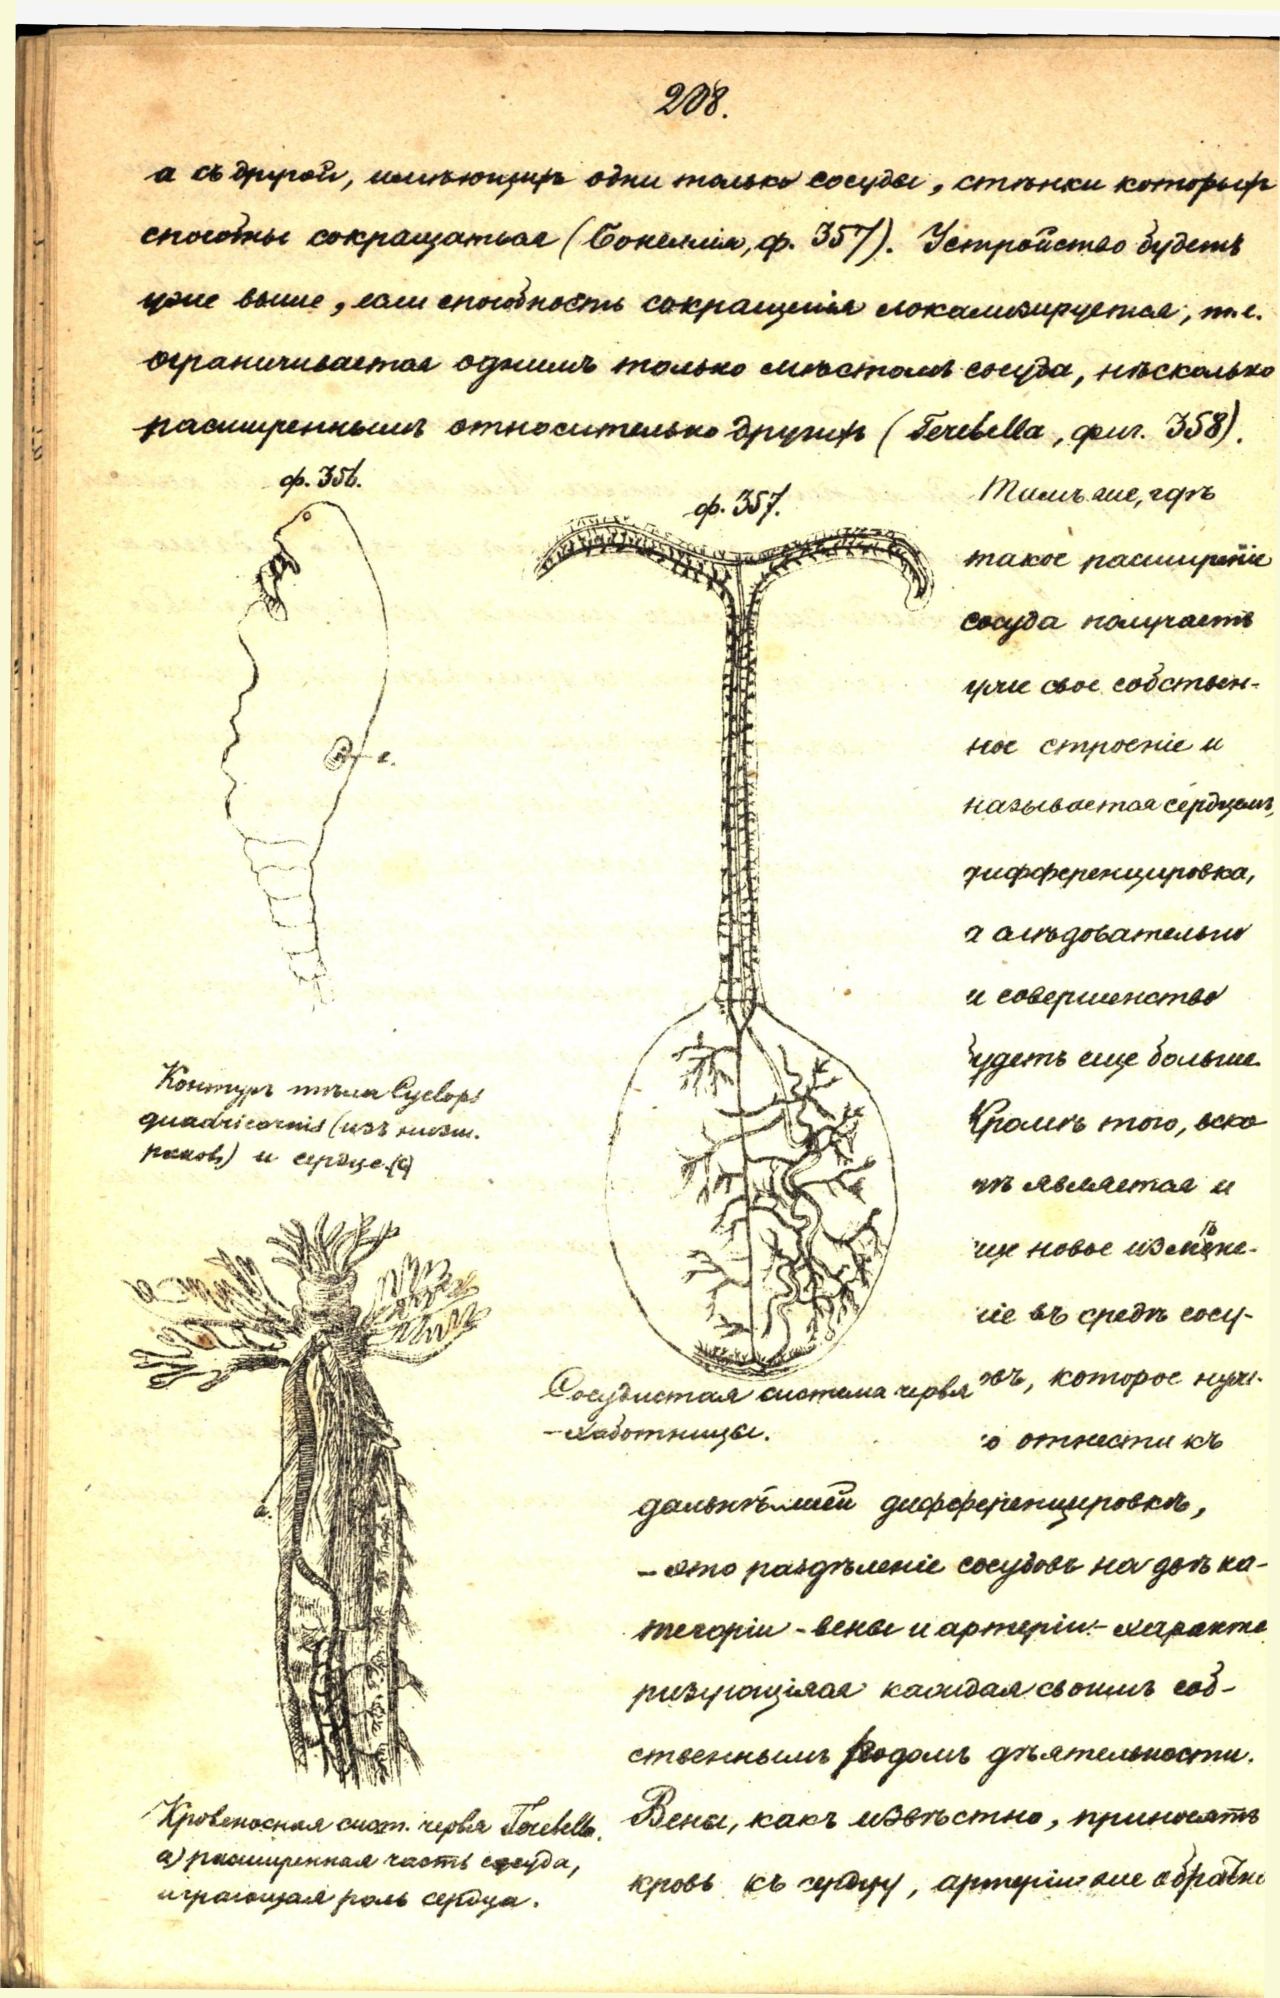 208.
а съ другой, имѣющихъ одни только сосуды, стѣнки которыхъ
способны сокращаться (Бонеллія, ф. 357). Устройство будетъ
уже выше, если способность сокращенія локализируется, т. е.
ограничивается однимъ только мѣстомъ сосуда, нѣсколько
расширеннымъ относительно другихъ (Terebella, фиг. 358).
ф. 356.
ф. 357.
Тамъ же, гдѣ
такое расширеніе
сосуда получаетъ
уже свое собствен-
ное строеніе и
называется сердцемъ,
дифференцировка,
а слѣдовательно
и совершенство
будетъ еще больше
Кромѣ того, вско
рѣ является и
еще новое измѣне-
ніе въ средѣ сосу-
довъ, которое нуж-
но отнести къ
дальнѣйшей дифференцировкѣ,
– это раздѣленіе сосудовъ на двѣ ка-
тегоріи – вены и артеріи – характе
ризующіяся каждая своимъ соб-
ственнымъ родомъ дѣятельности.
Вены, какъ извѣстно, приносятъ
кровь къ сердцу, артеріи же обратно
с.
Контуръ тѣла Cyclops
quadricornis (изъ низш.
раковъ) и сердце (с)
Сосудистая система червя
а.
Кровеносная сист. червя Terebella.
а) расширенная часть сосуда,
играющая роль сердца.